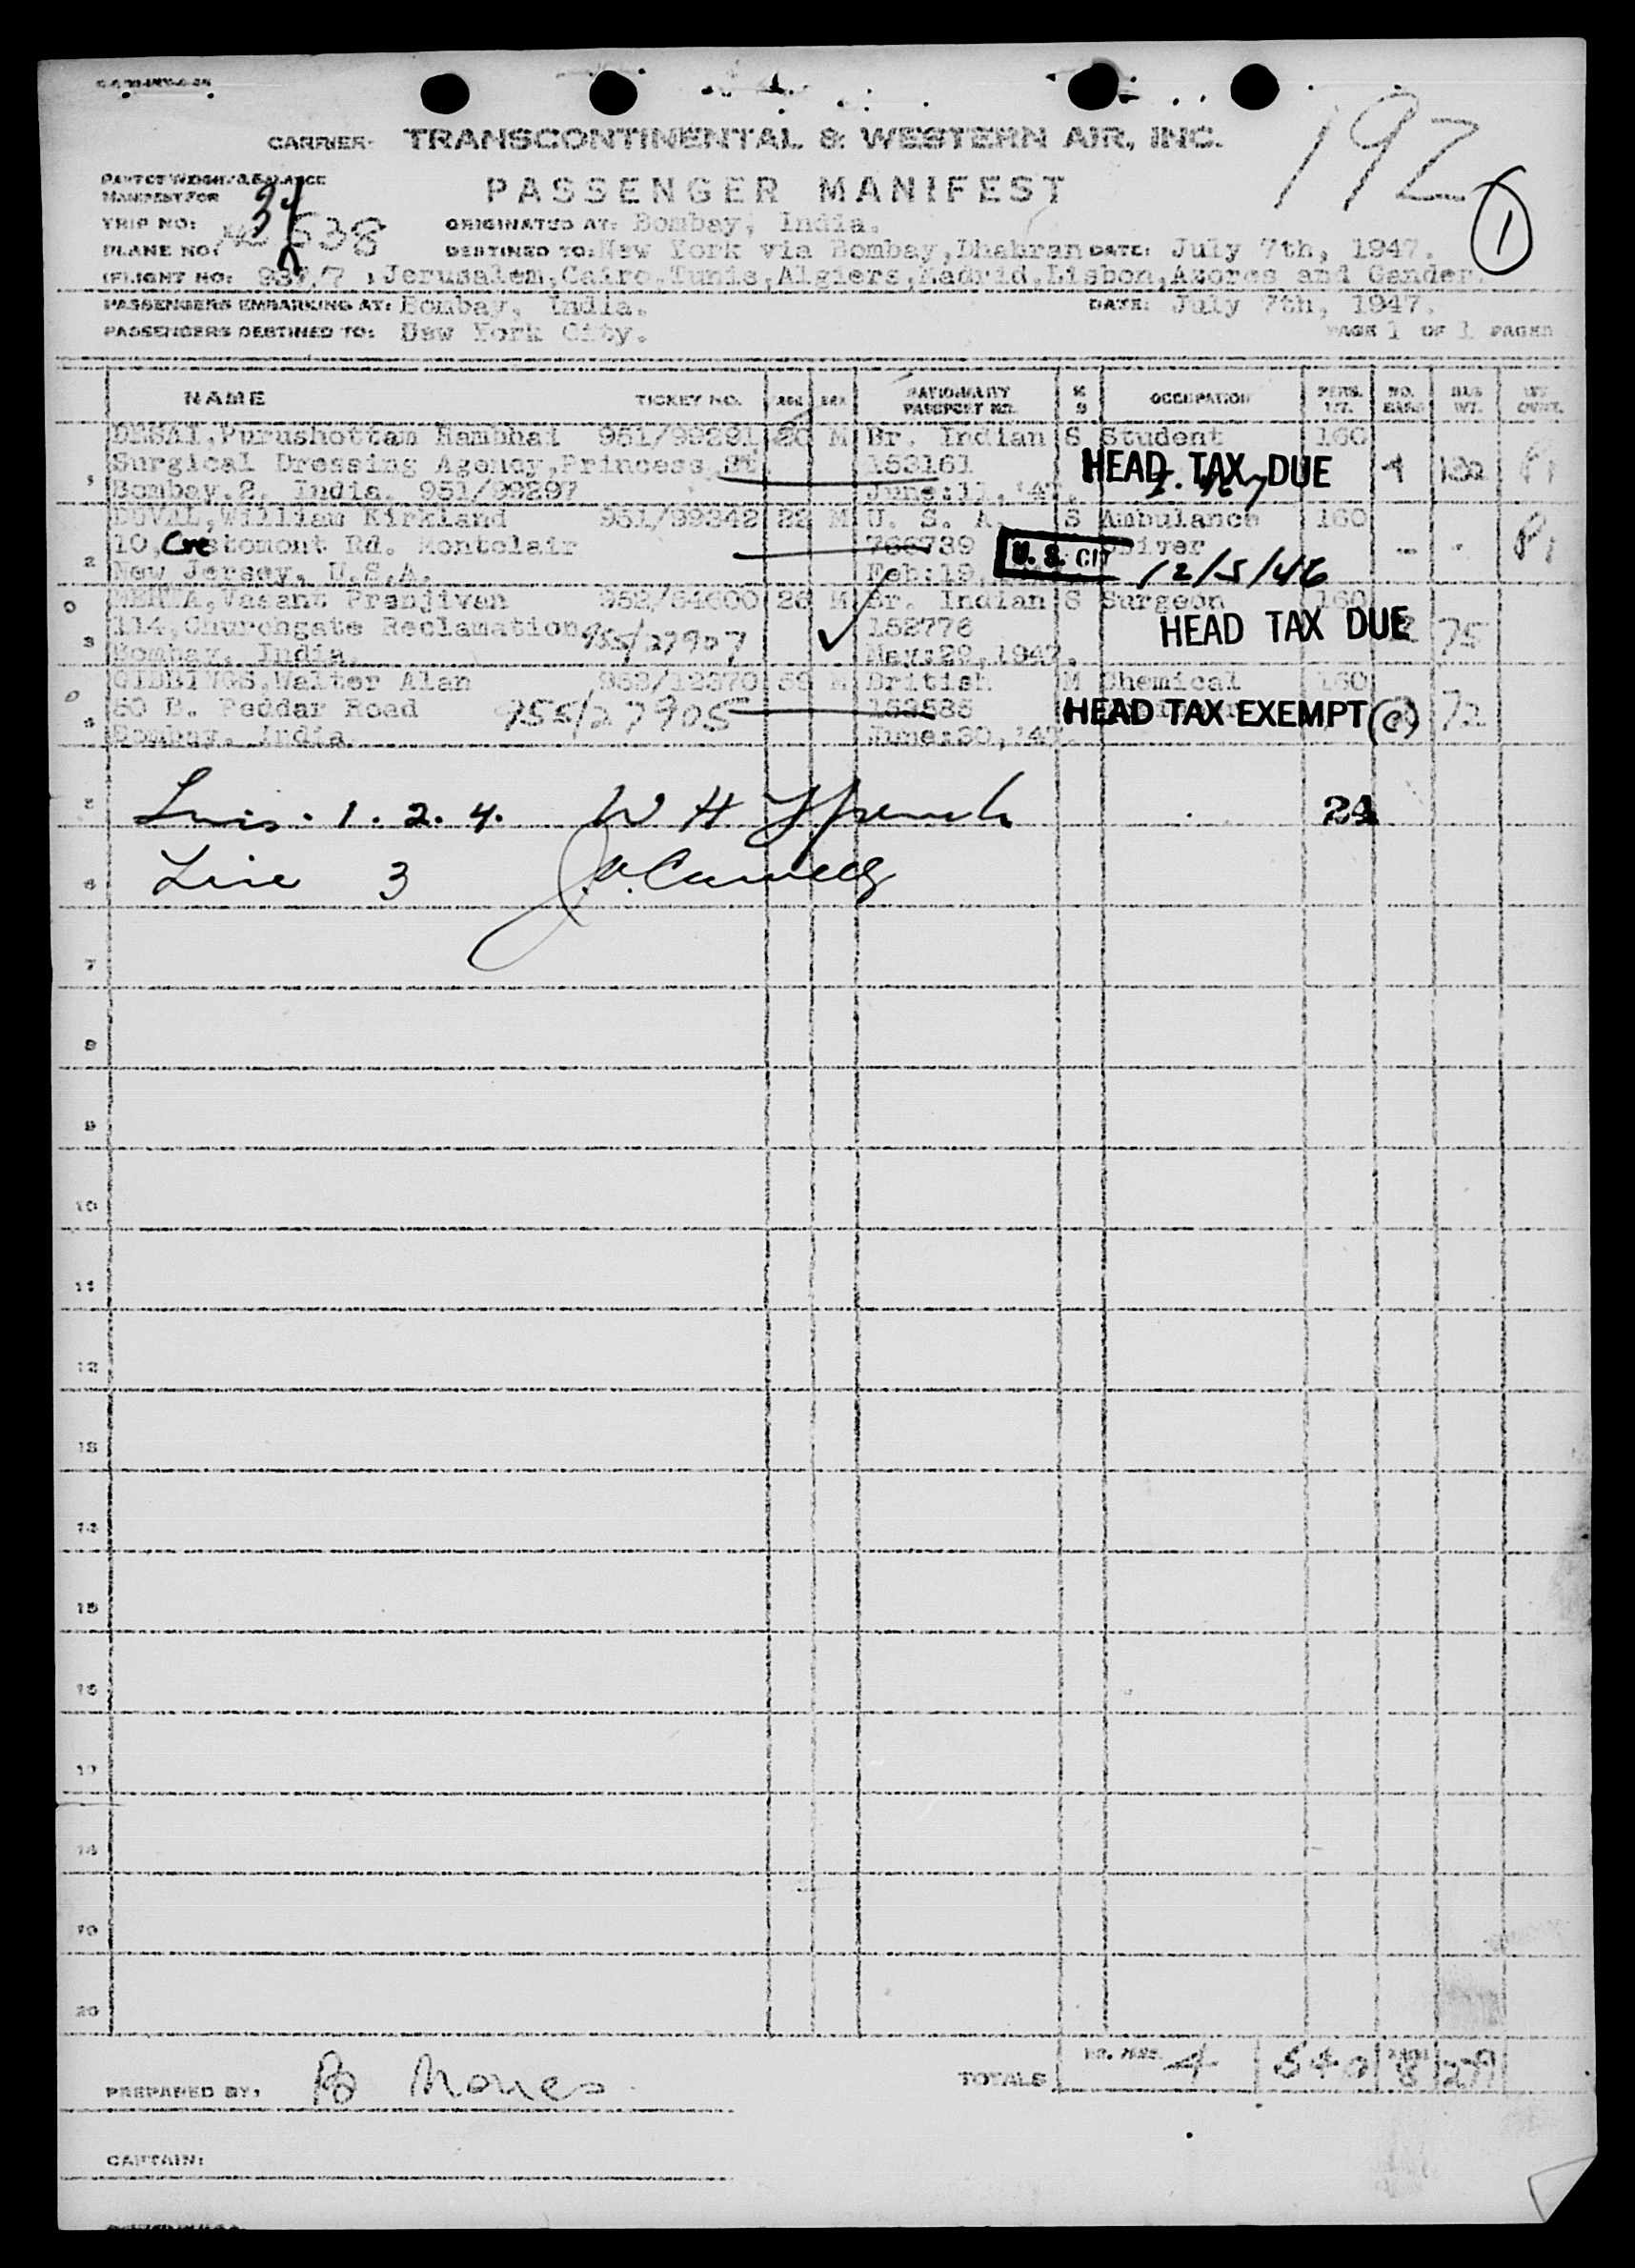 CARRIER- TRANSCONTINENTAL & WESTERN AIR, INC.
192
PART OF WEIGHT & BALANCE
MANIFEST FOR
PASSENGER MANIFEST
1
TRIP NO: 34
ORIGINATED AT: Bombay, India.
PLANE NO: NC 538
DESTINED TO: New York via Bombay,Dhahran DATE: July 7th, 1947.
(FLIGHT NO: /7 ,Jerusalem,Cairo,Tunis,Algiers,Madrid,Lisbon,Azores and Gander.
PASSENGERS EMBARKING AT: Bombay, India. DATE: July 7th, 1947.
PASSENGERS DESTINED TO: New York City. PAGE 1 OF 1 PAGES
NAME TICKET NO. AGE SEX NATIONALITY PASSPORT NO. M S OCCUPATION PERS. WT. NO. BAGS BAG WT.
DESAI,Purushottam Rambhai 951/99291 26 M Br. Indian S Student 160
1 Surgical Dressing Agency,Princess St. 153161 HEAD TAX DUE
Bombay.2. India. 951/99297 June:11,'47.
DUVAL,William Kirkland 951/99342 22 M U. S. A. S Ambulance 160
10,Crestomont Rd. Montclair 766739 U. S. CIT Driver
2 New Jersey. U.S.A. Feb:19, 12/5/46
MEHTA,Vasant Pranjivan 952/64600 26 M Br. Indian S Surgeon 160
3 114,Churchgate Reclamation 955/27907 152776 HEAD TAX DUE 75
Bombay. India. May:29,1947.
GIDDINGS,Walter Alan M British M Chemical 160
4 60 B. Peddar Road 955/27905 HEAD TAX EXEMPT (e) 72
Bombay. India. June:30,'47.
5 Lines. 1. 2. 4. W H 24
6 Line 3
7
8
9
10
11
12
13
14
15
16
17
18
19
20
PREPARED BY: TOTALS NO. PASS. 4 640 8
CAPTAIN: